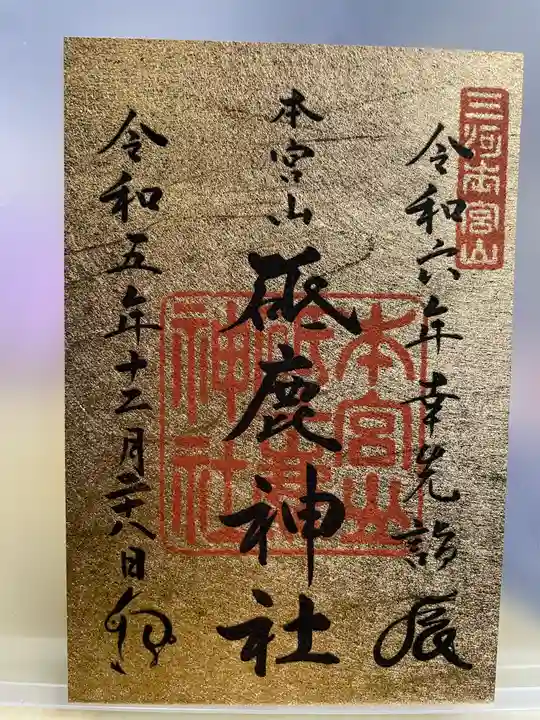 三河本宮山
令和六年幸先詣 辰
本宮山
砥鹿神社
本宮山
砥鹿嶽
神社
令和五年十二月二十八日 卯